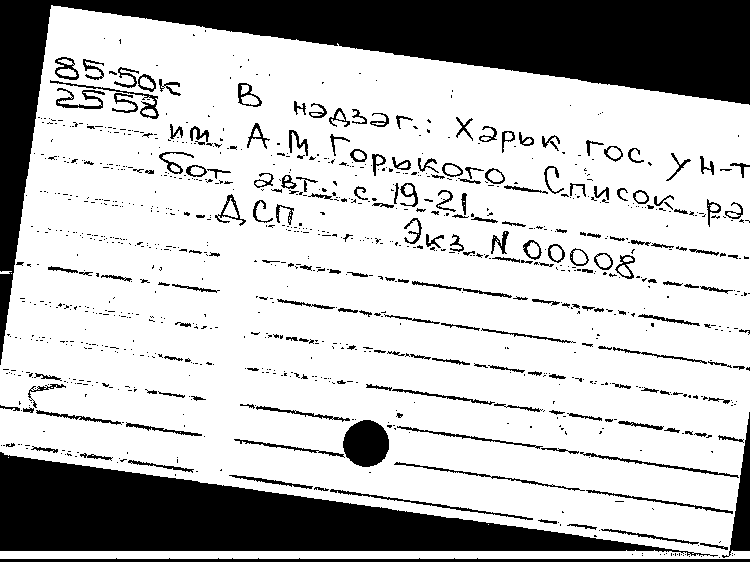 85-50к В надзаг.: Харьк. гос. ун-т
2558 им. А.М. Горького. Список ра
бот авт.: с. 19-21.
ДСП. Экз. N 00008.